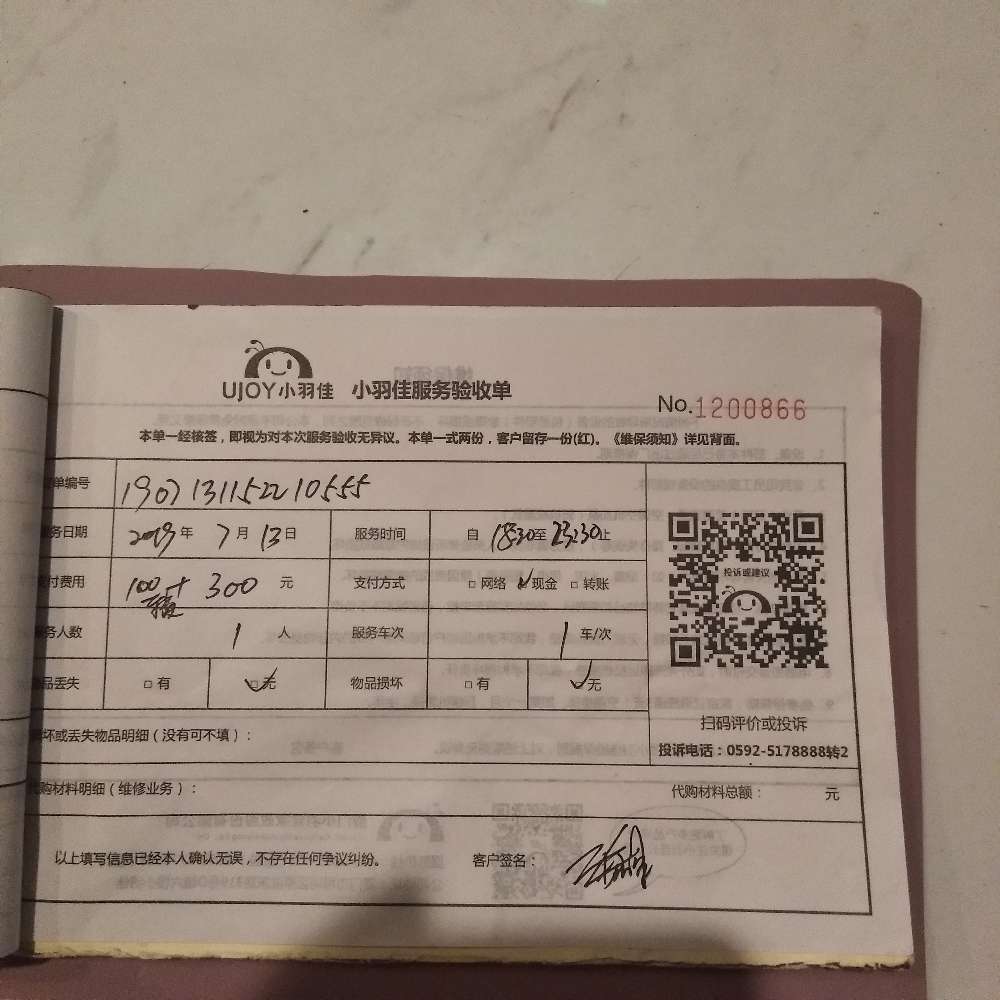 UJOY小羽佳 小羽佳服务验收单
No.1200866
本单一经核签，即视为对本次服务验收无异议。本单一式两份，客户留存一份(红)。《维保须知》详见背面。
单编号 1907131152210555
务日期 2019年 7月 13日 服务时间 自 18:30至 23:30止
支付费用 100 + 300 元 支付方式 □网络 ✓现金 □转账
务人数 1 人 服务车次 1 车/次
物品丢失 □有 ✓无 物品损坏 □有 ✓无
投诉或建议
扫码评价或投诉
投诉电话：0592-5178888转2
坏或丢失物品明细（没有可不填）：
代购材料明细（维修业务）： 代购材料总额： 元
以上填写信息已经本人确认无误，不存在任何争议纠纷。 客户签名：